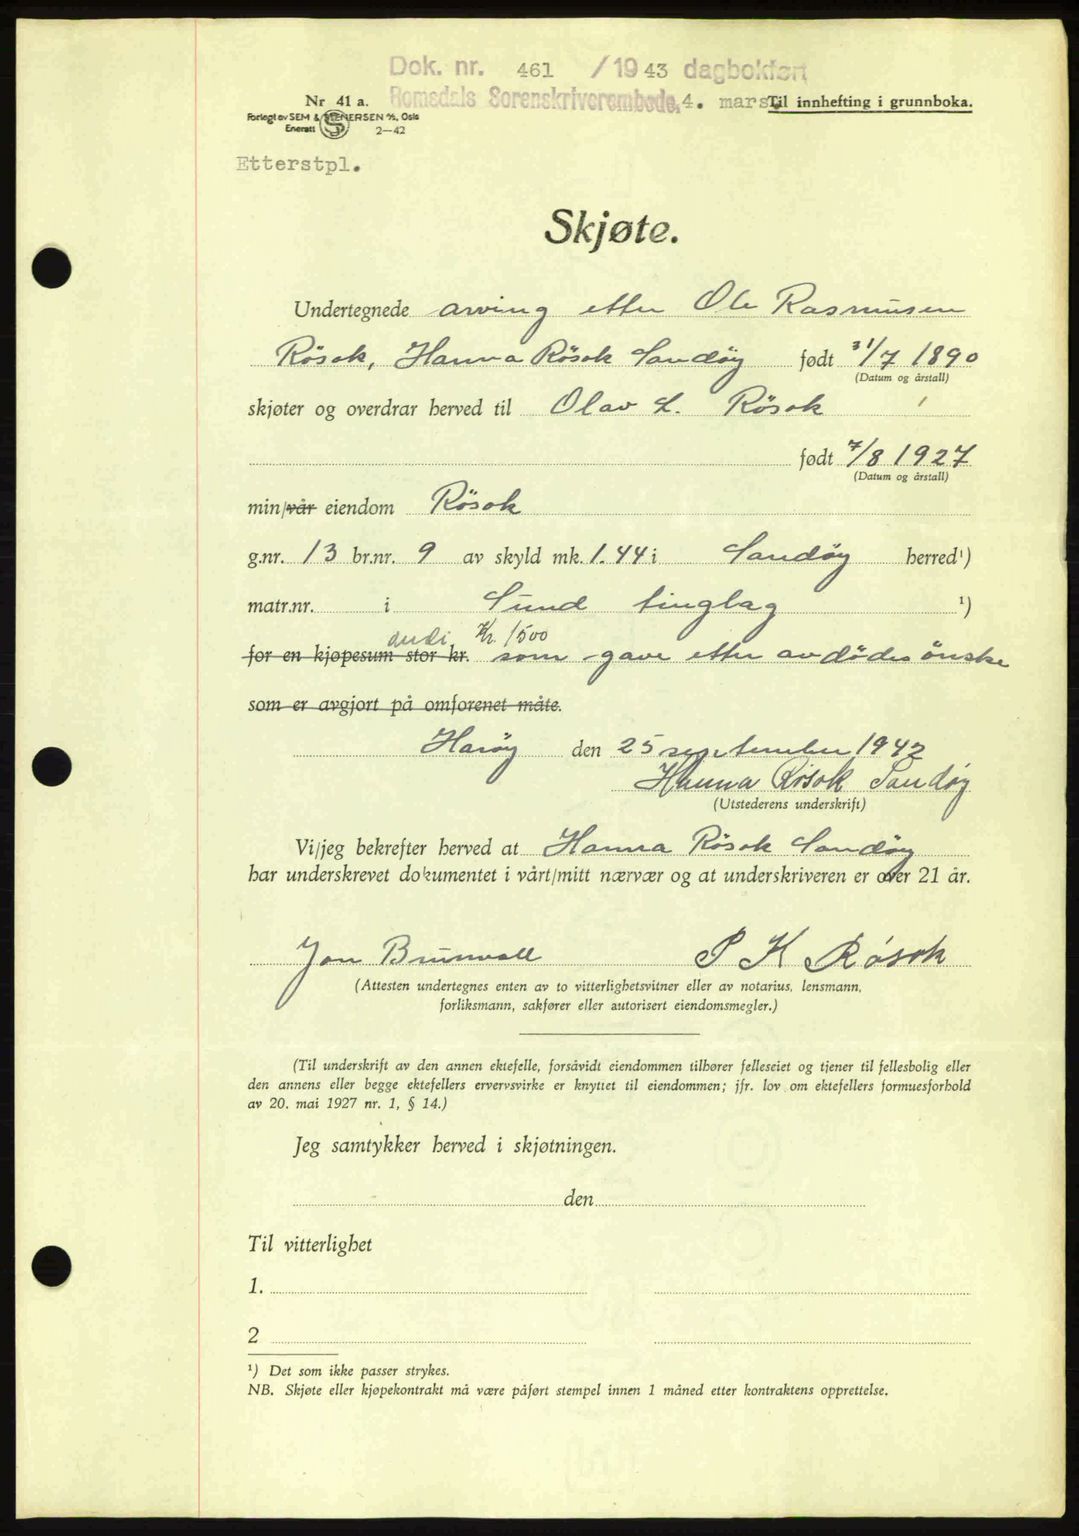 Dok. nr. 461 /1943 dagbokført
Nr 41 a. Romsdals Sorenskriverembede, 4. mars. Til innhefting i grunnboka.
Forlagt av SEM & STENERSEN A/S, Oslo
Enerett 2—42
Etterstpl.
Skjøte.
Undertegnede arving etter Ole Rasmussen
Røsok, Hanna Røsok Sandøy født 31/7 1890
(Datum og årstall)
skjøter og overdrar herved til Olav L. Røsok
født 7/8 1927
(Datum og årstall)
min/vår eiendom Røsok
g.nr. 13 br.nr. 9 av skyld mk. 1.44 i Sandøy herred¹)
matr.nr. i Sund tinglag ¹)
verdi Kr. 1500
for en kjøpesum stor kr. som gave etter avdødes ønske
som er avgjort på omforenet måte.
Harøy den 25 september 1942
Hanna Røsok Sandøy
(Utstederens underskrift)
Vi/jeg bekrefter herved at Hanna Røsok Sandøy
har underskrevet dokumentet i vårt/mitt nærvær og at underskriveren er over 21 år.
Jon Brunvoll P K Røsok
(Attesten undertegnes enten av to vitterlighetsvitner eller av notarius, lensmann,
forliksmann, sakfører eller autorisert eiendomsmegler.)
(Til underskrift av den annen ektefelle, forsåvidt eiendommen tilhører felleseiet og tjener til fellesbolig eller
den annens eller begge ektefellers ervervsvirke er knyttet til eiendommen; jfr. lov om ektefellers formuesforhold
av 20. mai 1927 nr. 1, § 14.)
Jeg samtykker herved i skjøtningen.
den
Til vitterlighet
1.
2
¹) Det som ikke passer strykes.
NB. Skjøte eller kjøpekontrakt må være påført stempel innen 1 måned etter kontraktens opprettelse.